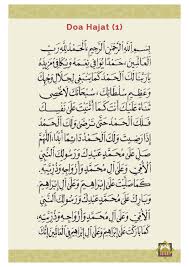 Doa Hajat (1)
بِسْمِ اللهِ الرَّحْمٰنِ الرَّحِيْمِ اَلْحَمْدُ لِلّٰهِ رَبِّ
الْعَالَمِيْنَ، حَمْدًا يُوَافِيْ نِعَمَهُ وَيُكَافِئُ مَزِيْدَهُ
يَا رَبَّنَا لَكَ الْحَمْدُ كَمَا يَنْبَغِيْ لِجَلَالِ وَجْهِكَ
وَعَظِيْمِ سُلْطَانِكَ، سُبْحَانَكَ لَا نُحْصِيْ
ثَنَاءً عَلَيْكَ اَنْتَ كَمَا اَثْنَيْتَ عَلَى نَفْسِكَ
فَلَكَ الْحَمْدُ حَتَّى تَرْضَى وَلَكَ الْحَمْدُ
اِذَا رَضِيْتَ وَلَكَ الْحَمْدُ اللّٰهُمَّ
صَلِّ عَلَى مُحَمَّدٍ عَبْدِكَ وَرَسُوْلِكَ النَّبِيِّ
الْاُمِّيِّ وَعَلَى آلِ مُحَمَّدٍ وَاَزْوَاجِهِ وَذُرِّيَّتِهِ
كَمَا صَلَّيْتَ عَلَى اِبْرَاهِيْمَ وَعَلَى آلِ اِبْرَاهِيْمَ
وَبَارِكْ عَلَى مُحَمَّدٍ عَبْدِكَ وَرَسُوْلِكَ النَّبِيِّ
الْاُمِّيِّ وَعَلَى آلِ مُحَمَّدٍ وَاَزْوَاجِهِ وَذُرِّيَّتِهِ
كَمَا بَارَكْتَ عَلَى اِبْرَاهِيْمَ وَعَلَى آلِ اِبْرَاهِيْمَ فِي الْعَالَمِيْنَ اِنَّكَ